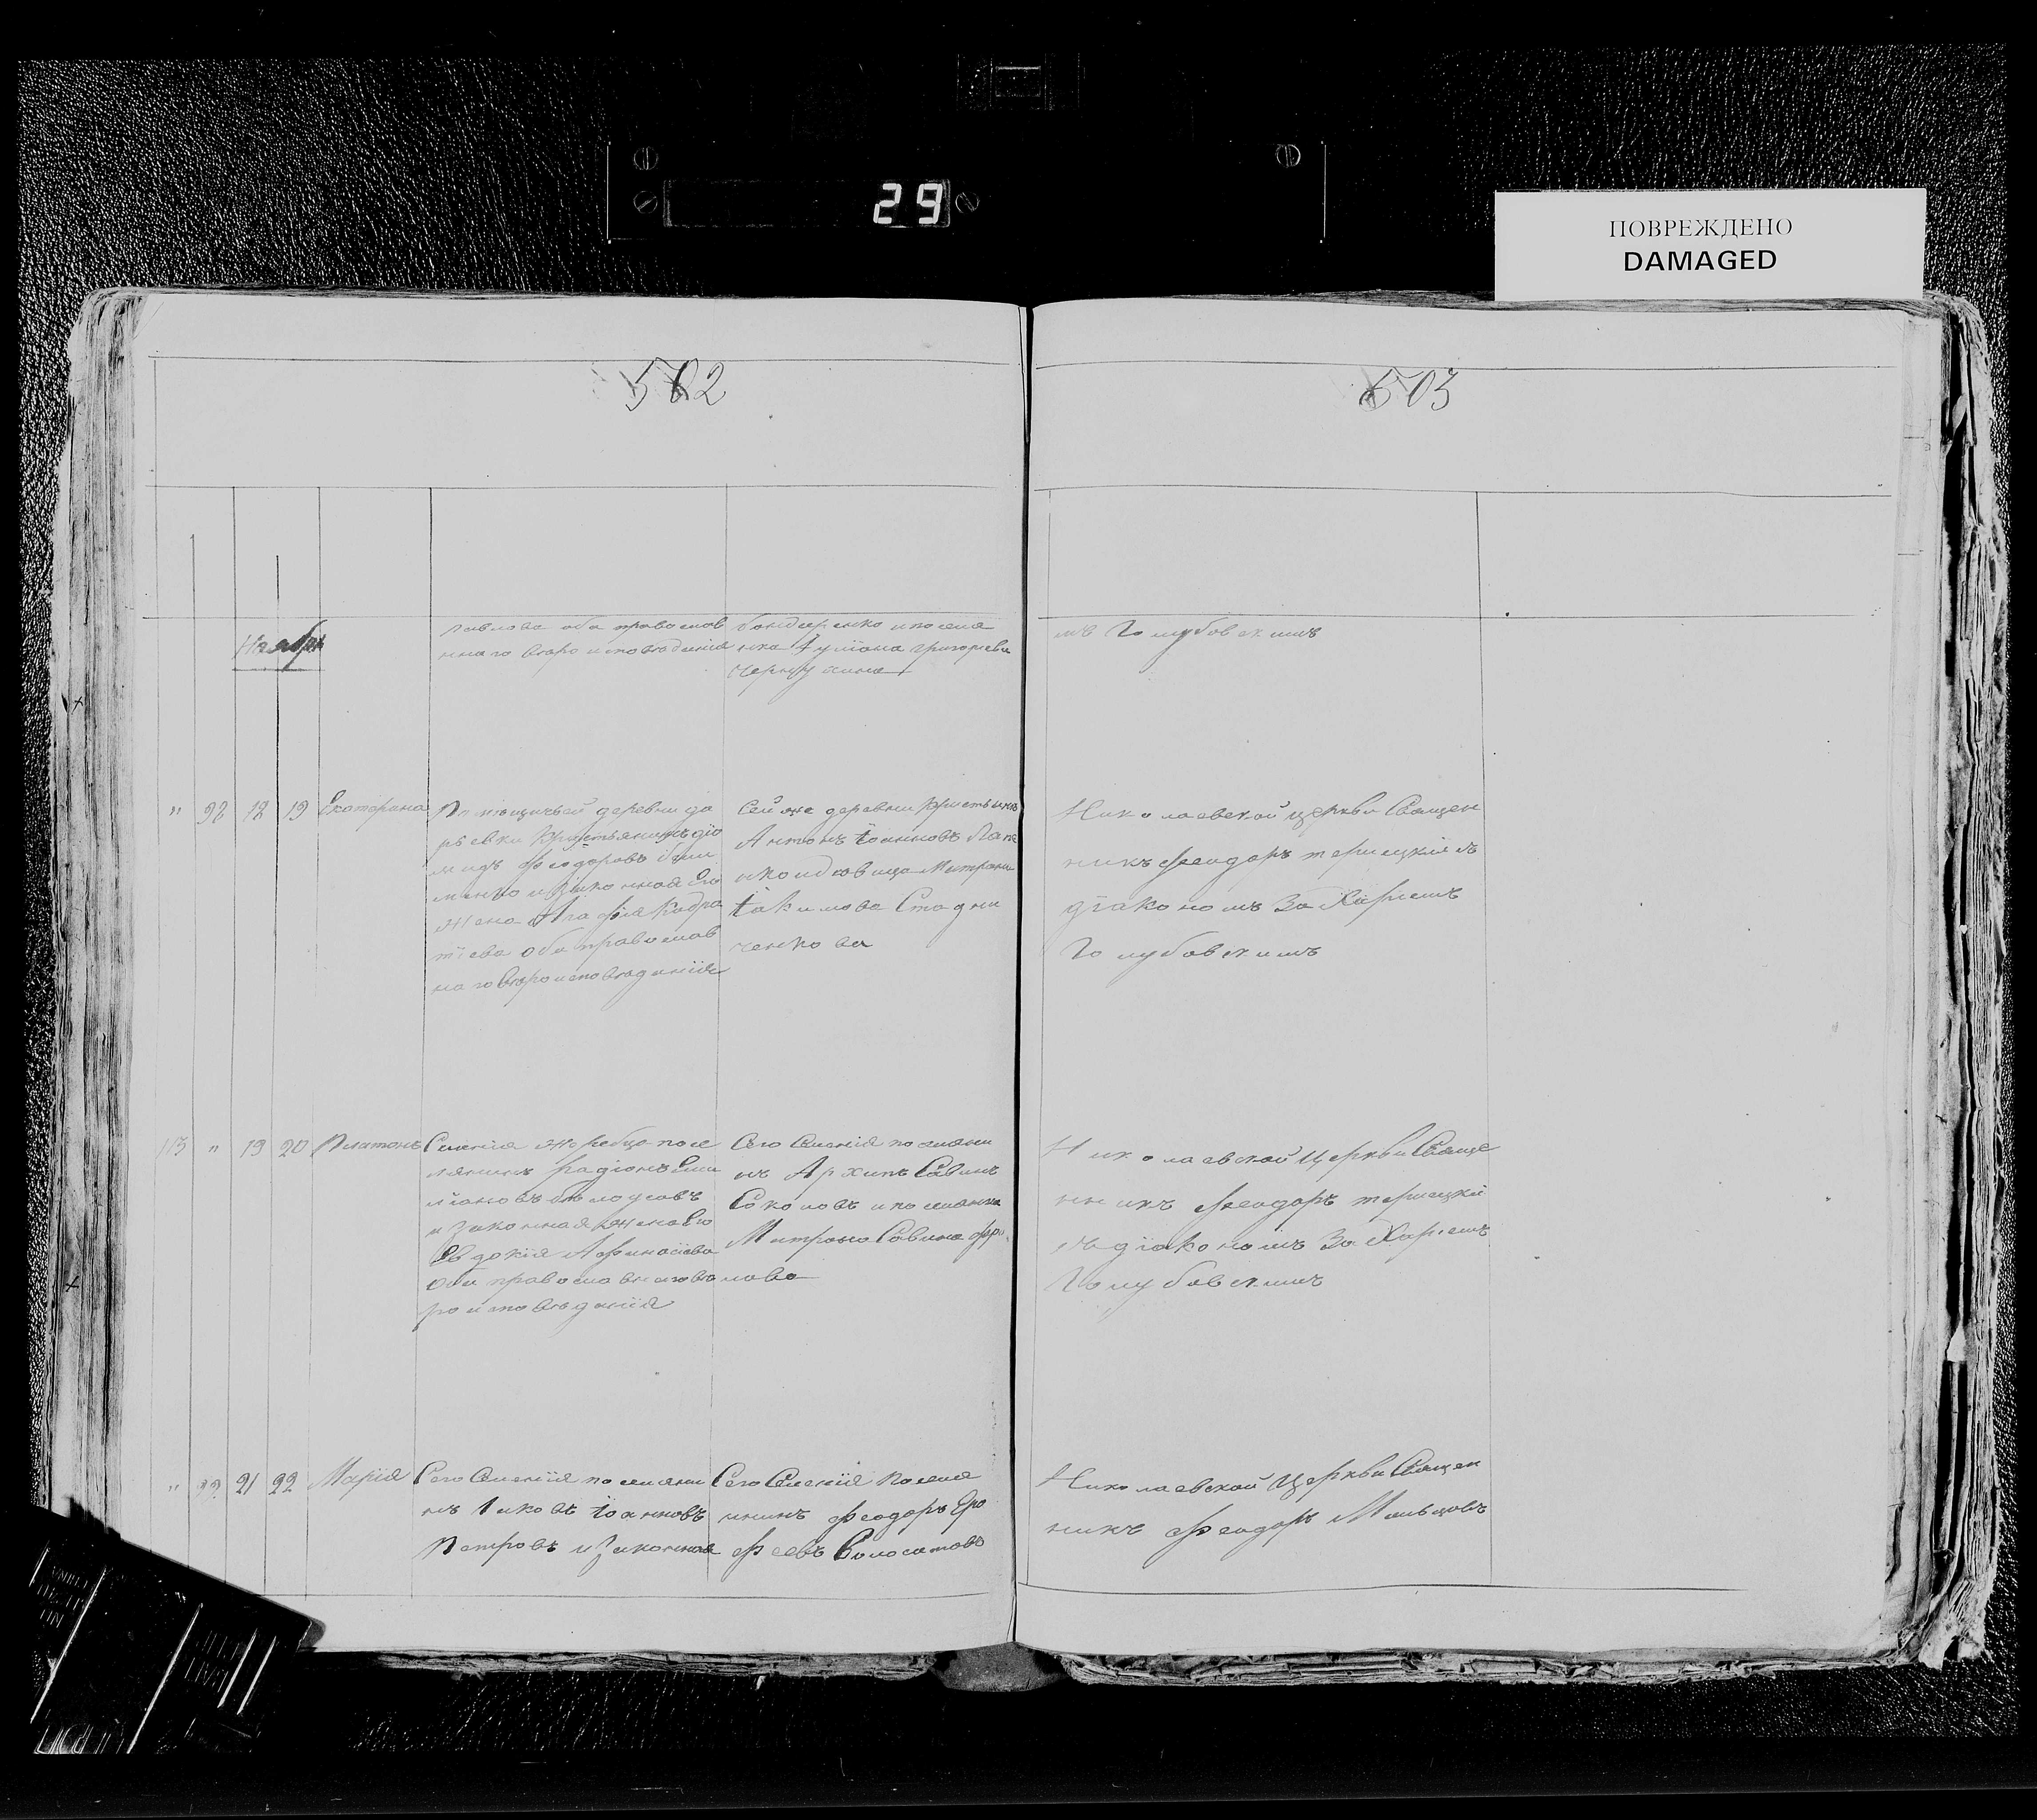 29
ПОВРЕЖДЕНО
DAMAGED
502
503
Ноябрь
павлова оба православ
ннаго вѣроисповѣданія
бондаренко и поселя
нка Іуліана григорьева
мъ Голубовскимъ
" 98 12 19 Екатерина
деревни да
рьевки Крестьянинъ діо
мидъ Феодоровъ
и законная Его
жена Агафія Кодра
тіева оба православ
наго вѣроисповѣданія
Сей же деревни Крестьянинъ
Антонъ Іоанновъ
и вдовица Матрона
Іакимова Стадни
ченкова
Николаевской церкви Священ
никъ Феодоръ терлецкій съ
діакономъ Захаріемъ
Голубовскимъ
113 " 19 20 Платонъ
Селенія жеребца посе
лянинъ Радіонъ Еми
ліановъ бѣлоусовъ
и Законная жена Его
Евдокія Афанасіева
Оба православнаго вѣ
роисповѣданія
Сего Селенія поселяни
нъ Архипъ Савинъ
Соколовъ и поселянка
Матрона Савина фро
лова
Николаевской Церкви Свяще
нникъ Феодоръ терлецкій
съ діакономъ Захаріемъ
Голубовскимъ
" 99 21 22 Марія
Сего Селенія поселяни
нъ Іаковъ Іоанновъ
Петровъ и Законная
Сего Селенія Поселя
нинъ Феодоръ Еро
феевъ Волосатовъ
Николаевской Церкви Священ
никъ Феодоръ Мальцовъ